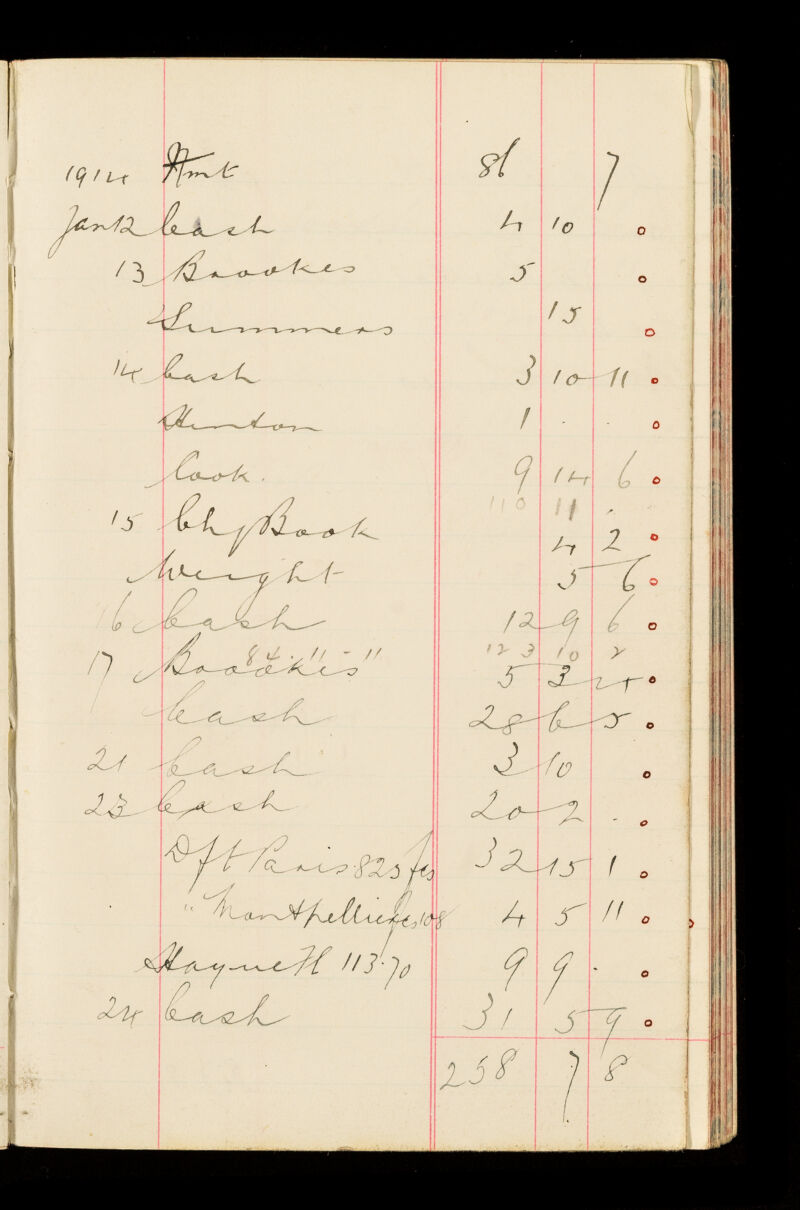 1914 Amt 86 7
Jan 12 Cash 4 10
13 Broookes 5
Summers 15
14 Cash 3 10 11
Hinton 1 . .
Cook. 9 14 6
110 11 .
15 Chq Book 4 2
Weight 5 6
16 Cash 12 9 6
84 . 11 - " 123 10 2
17 Broookes 5 3 4
Cash 28 6 5
21 Cash 3 10
23 Cash 20 2 .
Dft Paris 825 fcs 32 15 1
" Montpellier fcs 108 4 5 11
Hayne H 113.70 9 9 .
24 Cash 31 5 9
258 7 8